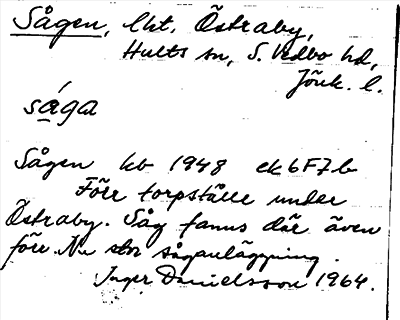 Sågen, lht. Östraby,
Hults sn, S. Vedbo hd,
Jönk. l.
sága
Sågen kb 1948 ek 6F7b
Förr torpställe under
Östraby. Såg fanns där även
förr. Nu stor såganläggning.
Inger Danielsson 1964.